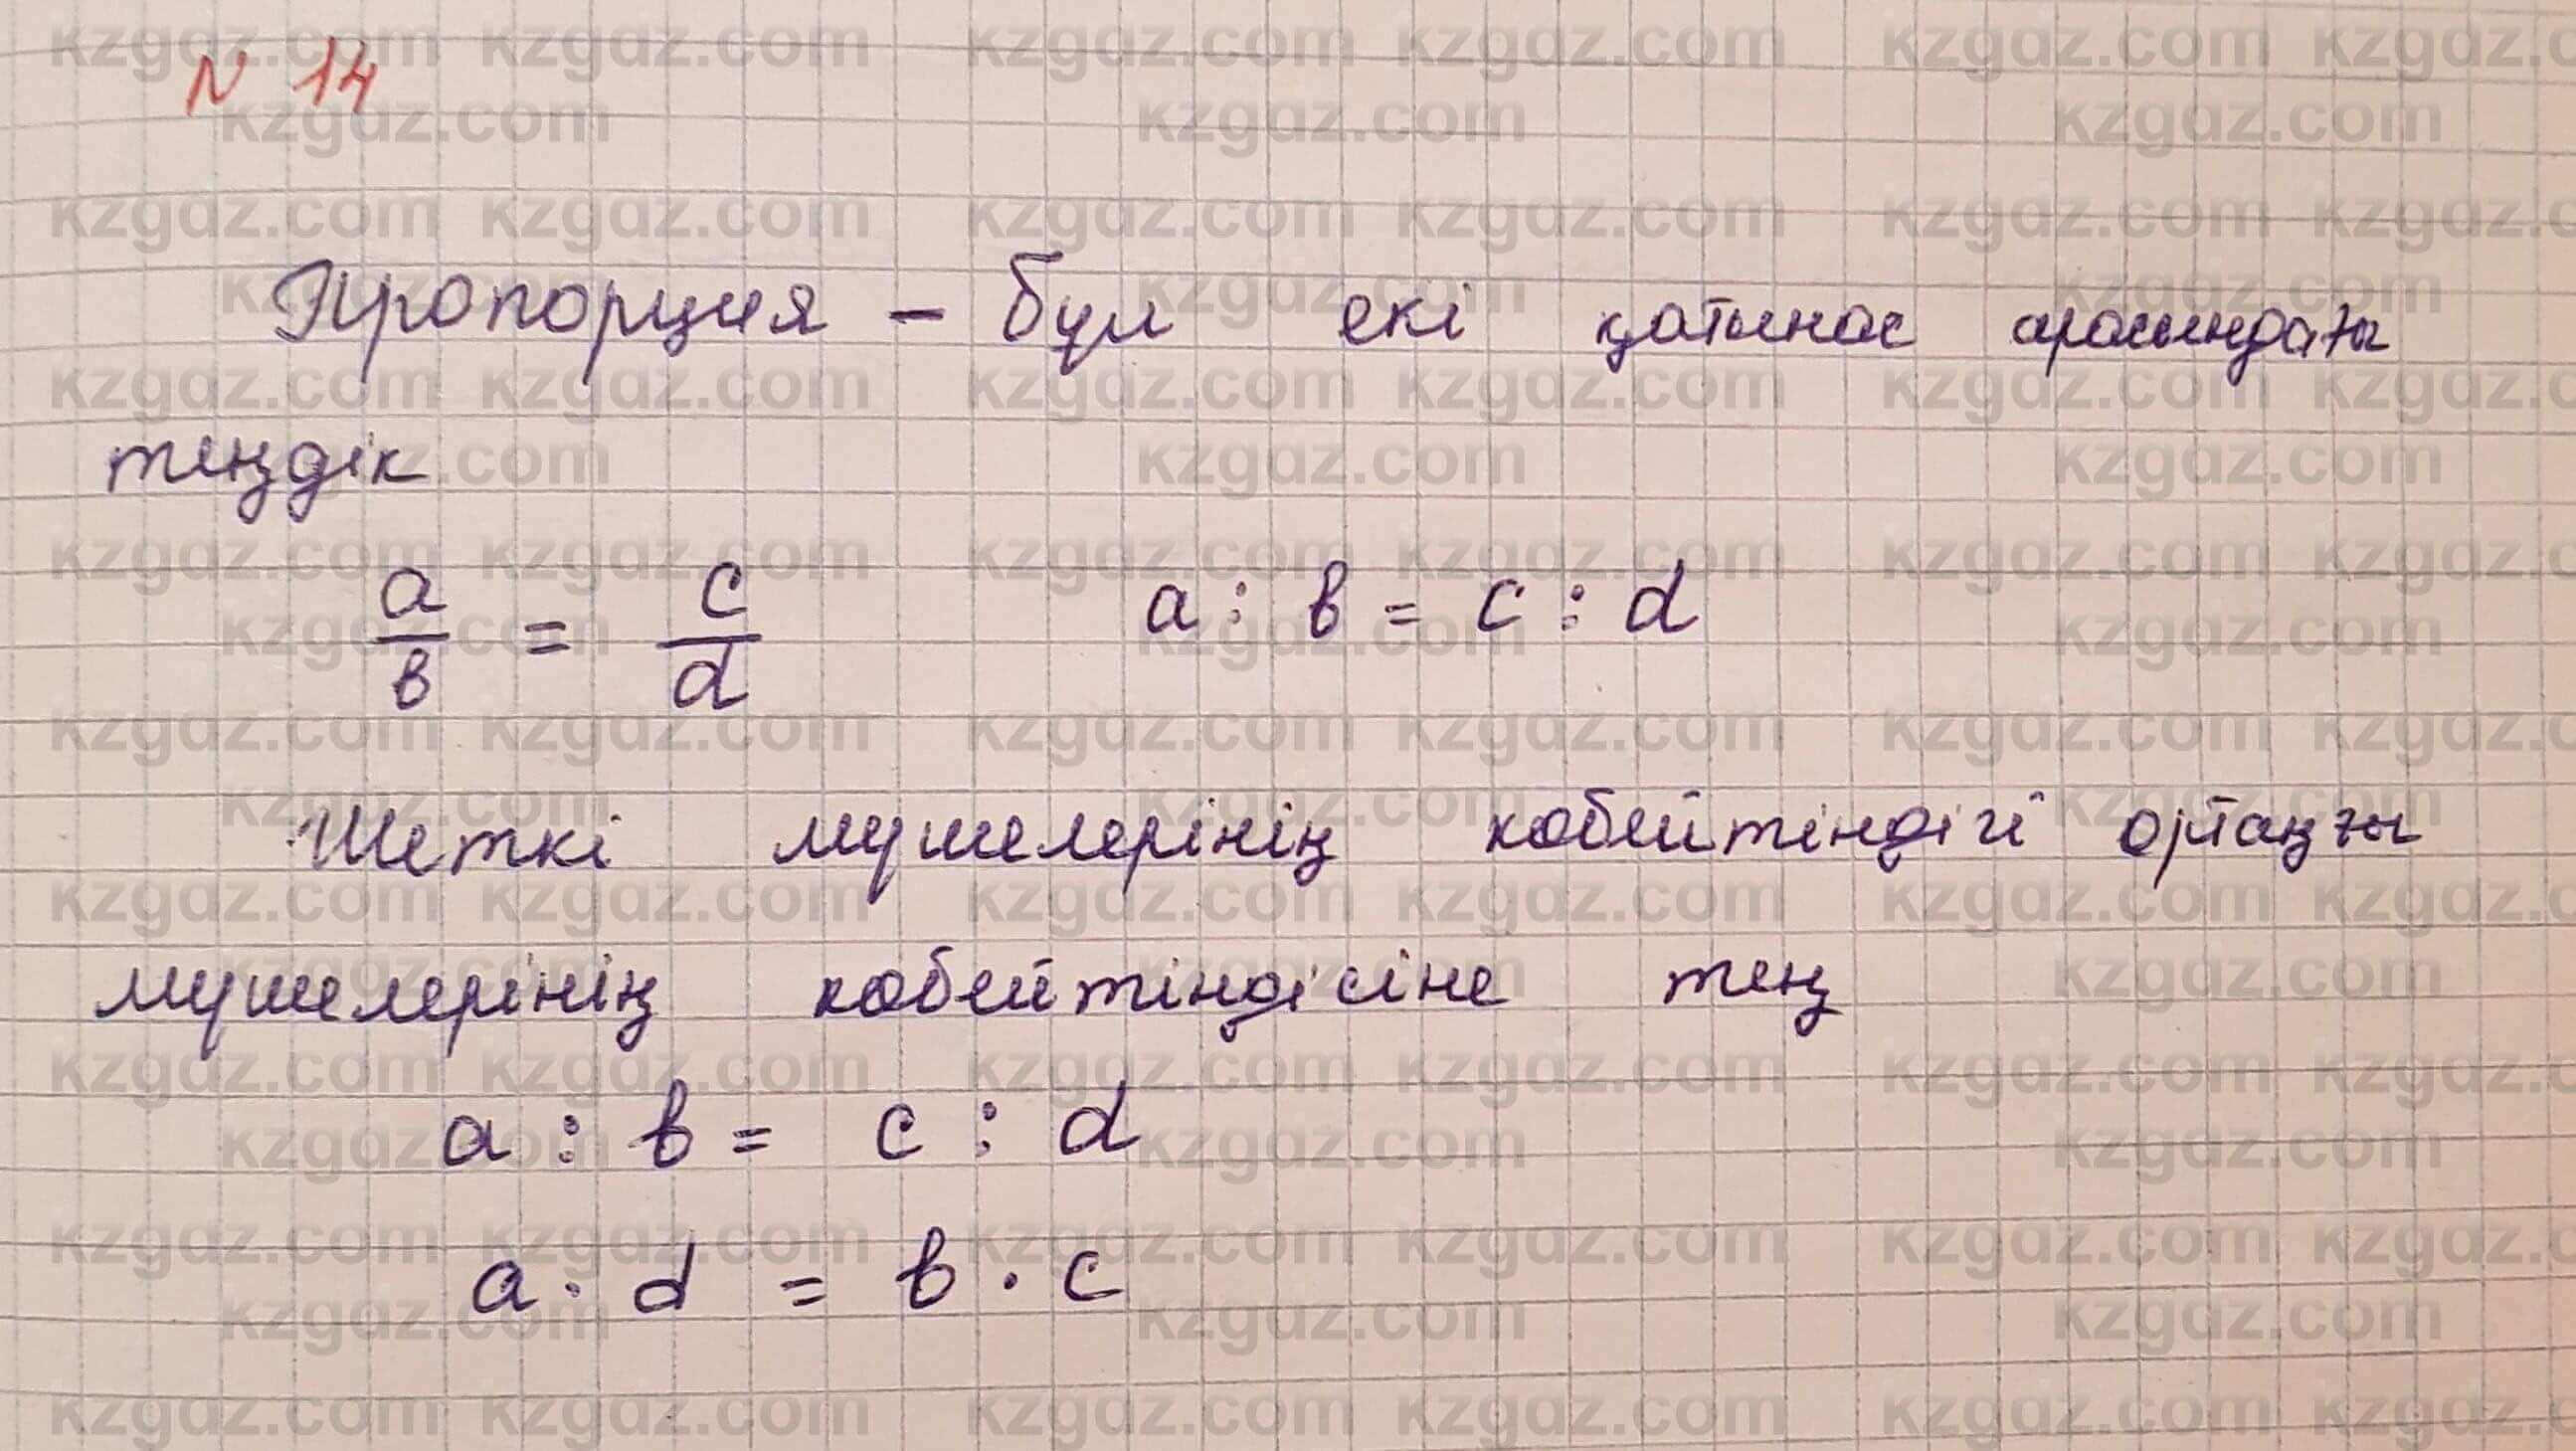 N 14
Пропорция - бұл екі қатынас арасындағы
теңдік
a/b = c/d a : b = c : d
Шеткі мүшелерінің көбейтіндігі ортаңғы
мүшелерінің көбейтіндісіне тең
a : b = c : d
a · d = b · c
kzgdz.com